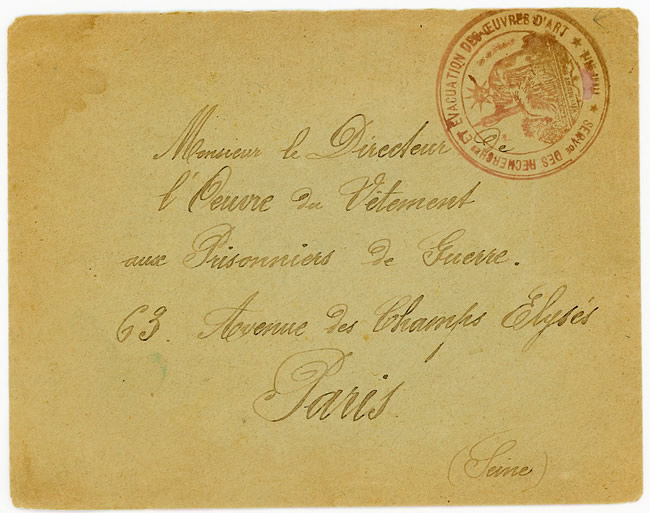 SERVce DES RECHERCHES ET EVACUATION DES ŒUVRES D'ART
Monsieur le Directeur de
l'Oeuvre du Vêtement
aux Prisonniers de Guerre.
63. Avenue des Champs Elysés
Paris
(Seine)